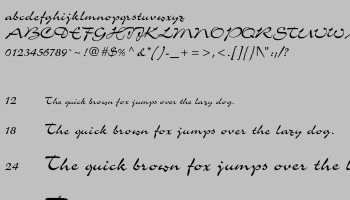 abcdefghijklmnopqrstuvwxyz
ABCDEFGHIJKLMNOPQRSTUVW
0123456789`~!@#$%^&*()-_+=>,<.[]{}/\":;/?
12 The quick brown fox jumps over the lazy dog.
18 The quick brown fox jumps over the lazy dog.
24 The quick brown fox jumps over the l